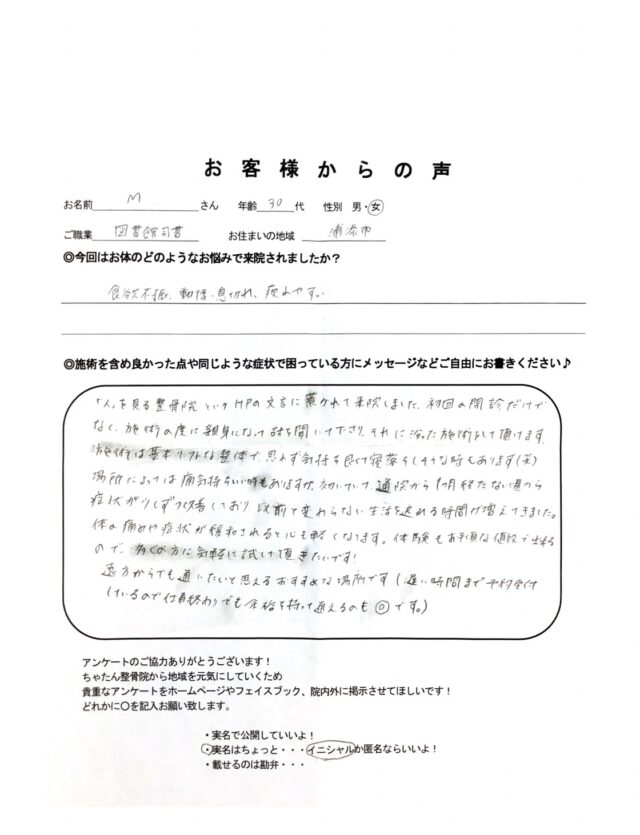 お客様からの声
お名前 M さん 年齢 30 代 性別 男・女
ご職業 図書館司書 お住まいの地域 浦添市
◎今回はお体のどのようなお悩みで来院されましたか？
食欲不振、動悸・息切れ、疲れやすい
◎施術を含め良かった点や同じような症状で困っている方にメッセージなどご自由にお書きください♪
「人」を見る整骨院というHPの文言に惹かれて来院しました。初回の問診だけで
なく、施術の度に親身になって話を聞いて下さり、それに沿った施術をして頂けます。
施術は基本ソフトな整体で、思わず気持ち良くて寝落ちしそうな時もあります(笑)
場所によっては痛気持ちいい時もありますが、効いていて、通院から1ヶ月経たない頃から
症状が少しずつ改善しており以前と変わらない生活を送れる時間が増えてきました。
体の痛みや症状が緩和されると心も軽くなります。体験もお手頃な値段で出来る
ので、多くの方に気軽に試して頂きたいです！
遠方からでも通いたいと思えるおすすめな場所です(遅い時間まで予約受付
しているので仕事終わりでも余裕を持って通えるのも◎です。)
アンケートのご協力ありがとうございます！
ちゃたん整骨院から地域を元気にしていくため
貴重なアンケートをホームページやフェイスブック、院内外に掲示させてほしいです！
どれかに〇を記入お願い致します。
・実名で公開していいよ！
・実名はちょっと・・・イニシャルか匿名ならいいよ！
・載せるのは勘弁・・・